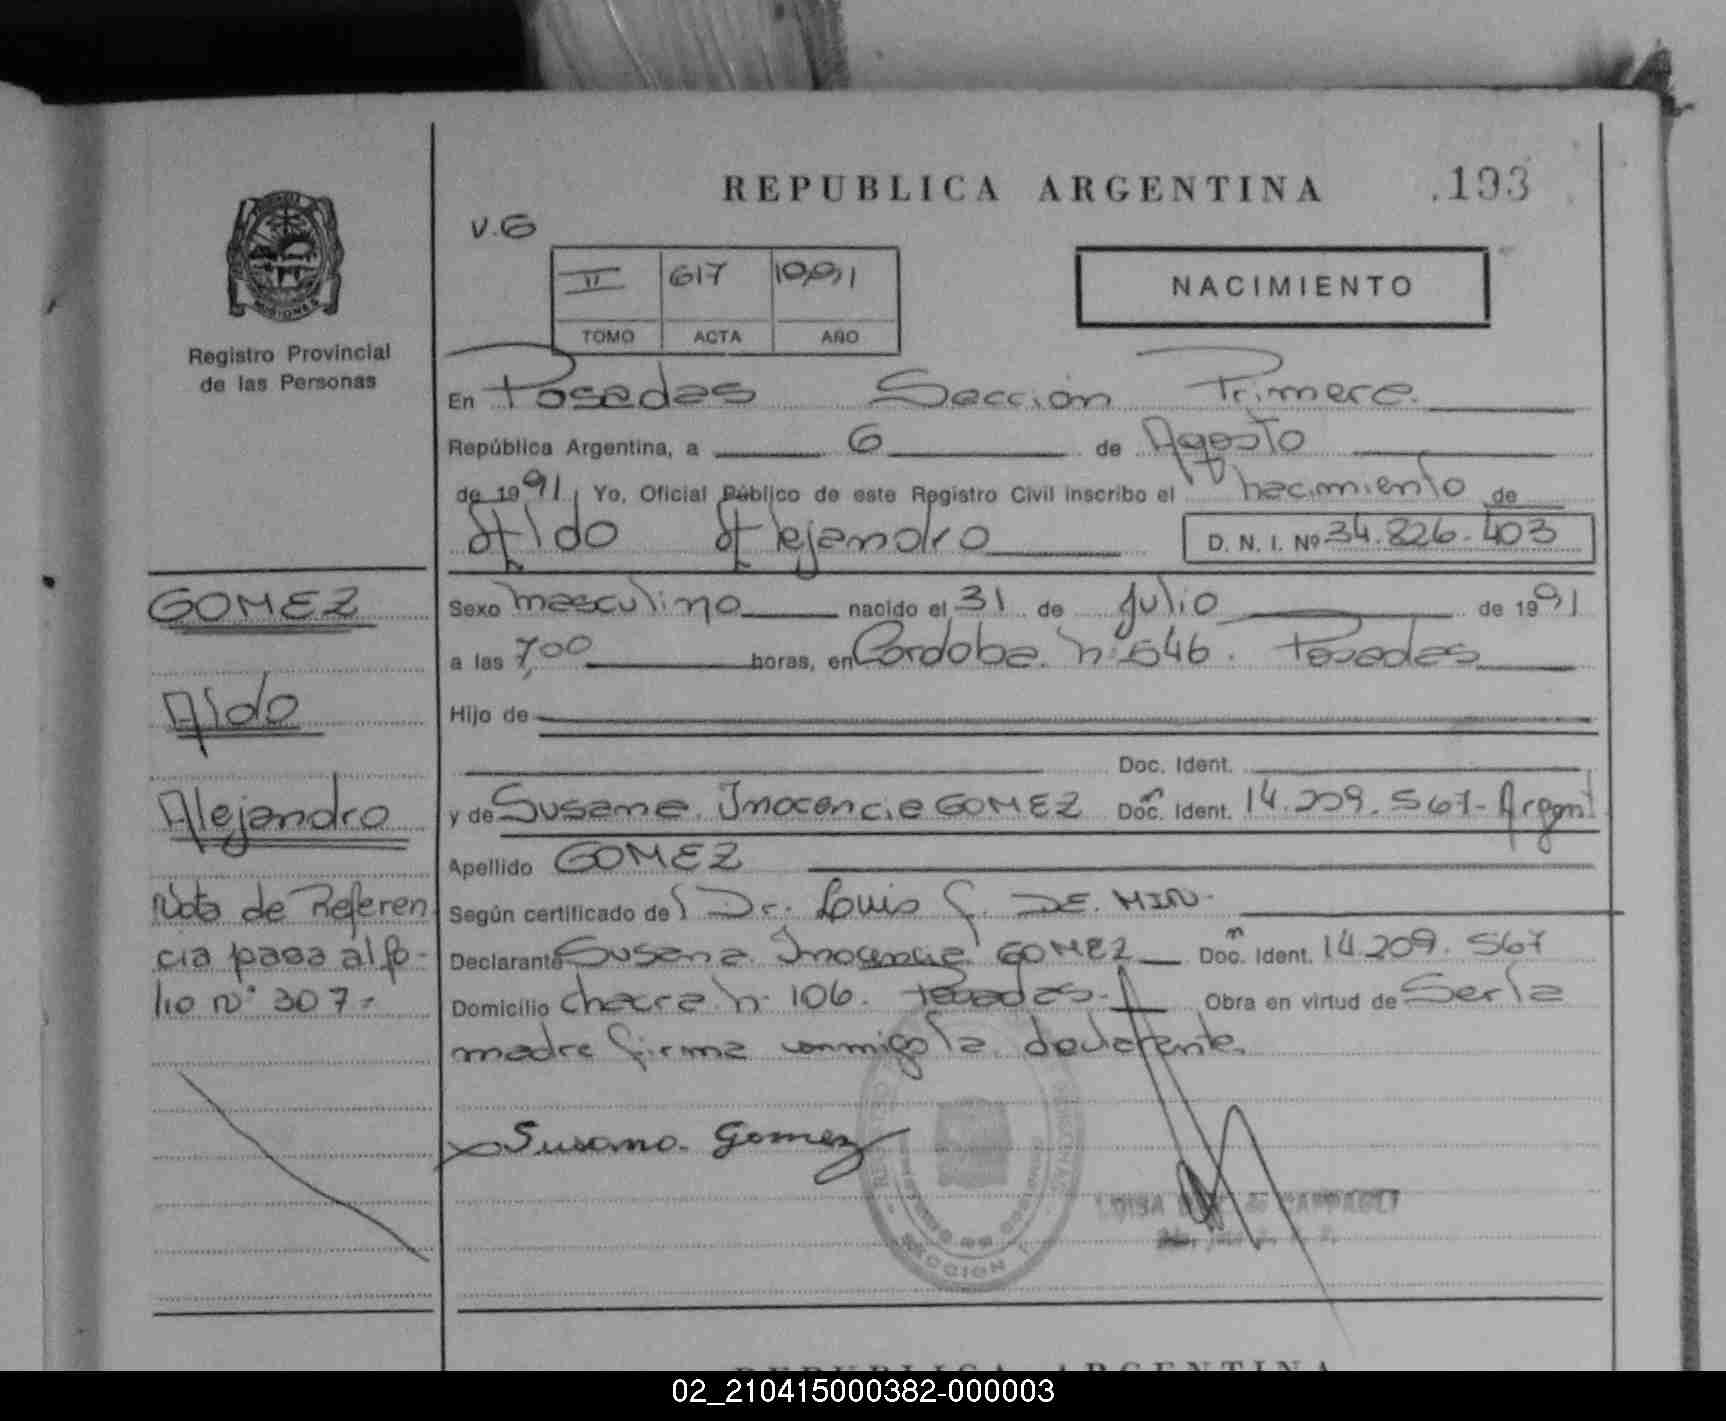 REPUBLICA ARGENTINA
.193
V.G
II 617 1991
TOMO ACTA AÑO
NACIMIENTO
MISIONES
Registro Provincial
de las Personas
En Posadas Sección Primera
República Argentina, a 6 de Agosto
de 1991, Yo, Oficial Público de este Registro Civil inscribo el nacimiento de
Aldo Alejandro D. N. I. Nº 34.826.403
Sexo masculino nacido el 31 de Julio de 1991
a las 7,00 horas, en Cordoba n: 646. Posadas
Hijo de
Doc. Ident.
y de Susana Inocencia GOMEZ Doc. Ident. 14.209.567- Argent
Apellido GOMEZ
Según certificado del Dr. Luis G. DE. MIN.
Declarante Susana Inocencia GOMEZ Doc. Ident. 14.209.567
Domicilio chacra n: 106. Posadas- Obra en virtud de Ser la
madre firma conmigo la declarante.
Susana. Gomez
SECCION
GOMEZ
Aldo
Alejandro
Nota de Referen
cia pasa al fo-
lio n° 307-
REPUBLICA ARGENTINA
02_210415000382-000003